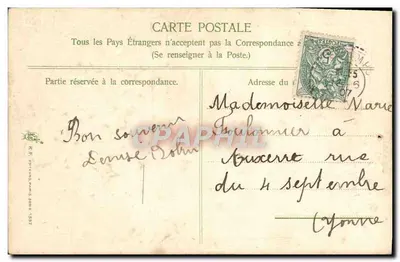 CARTE POSTALE
Tous les Pays Étrangers n'acceptent pas la Correspondance
(Se renseigner à la Poste.)
Partie réservée à la correspondance.
Adresse du
Bon souvenir
Denise
Mademoiselle Marie
à
Auxerre rue
du 4 septembre
(Yonne